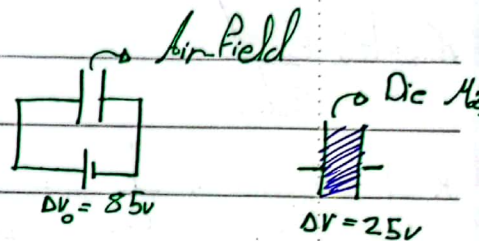 Air field
Die
ΔV₀ = 85v
ΔV = 25v